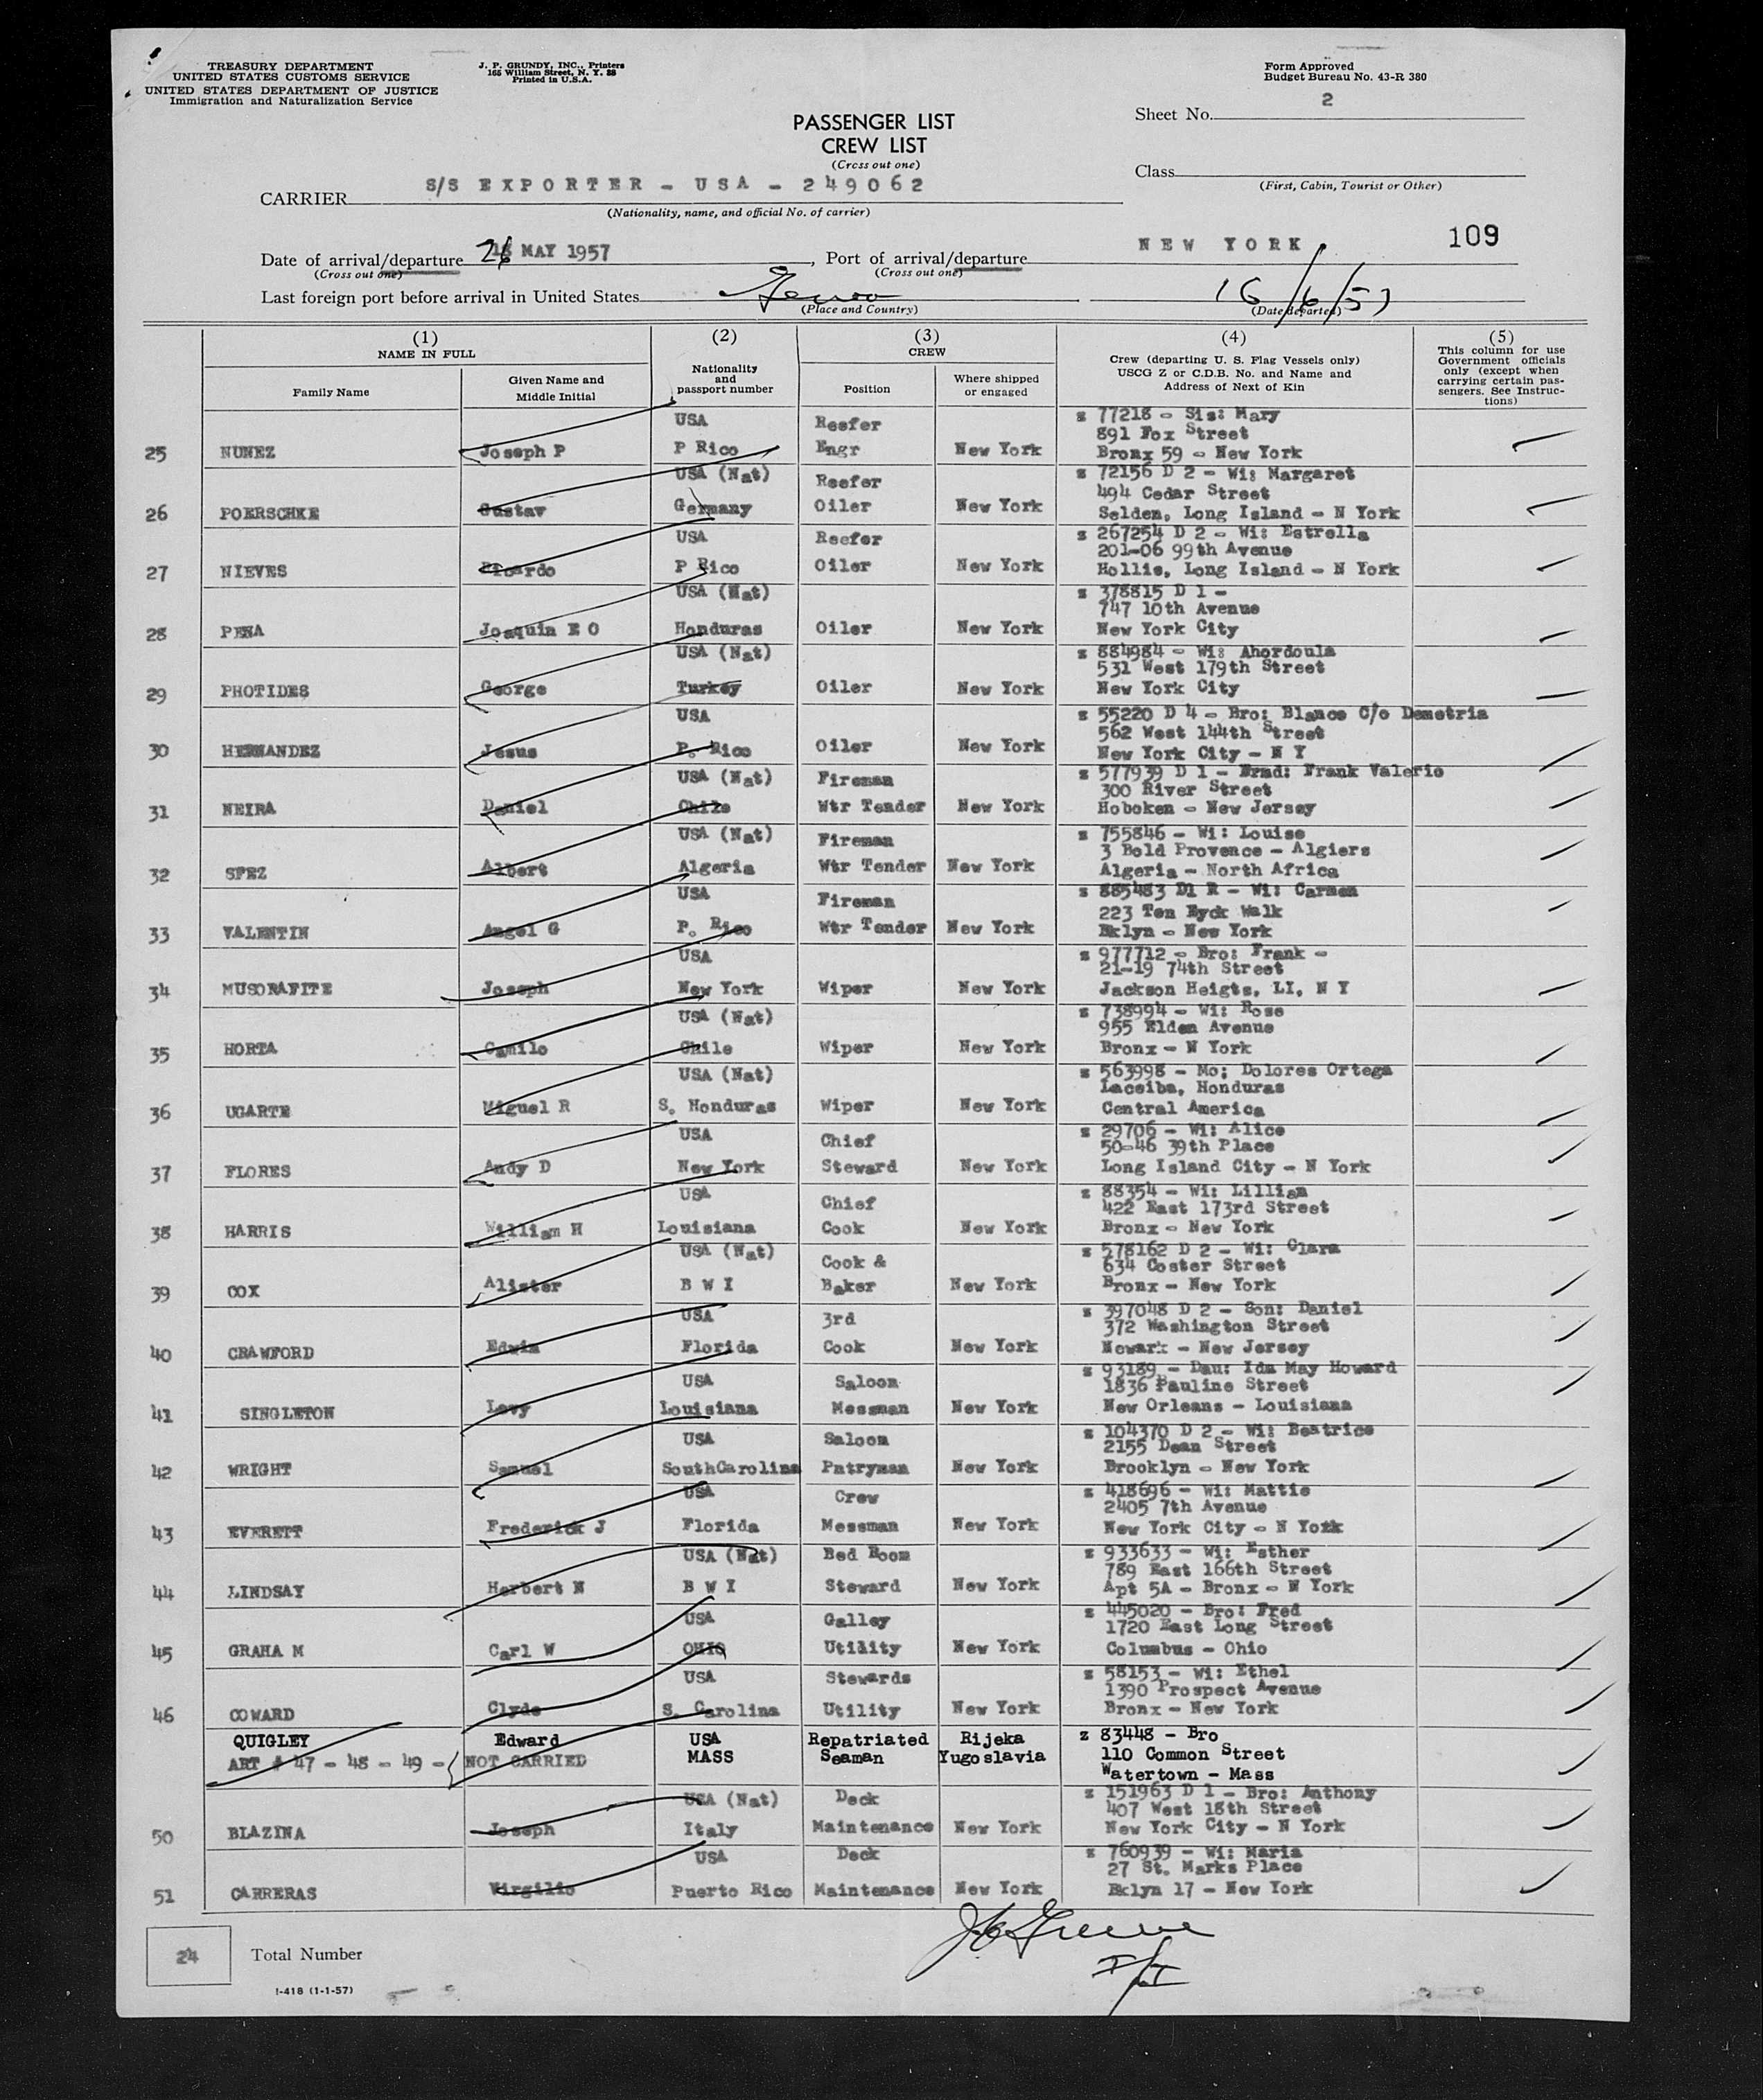 TREASURY DEPARTMENT
UNITED STATES CUSTOMS SERVICE
UNITED STATES DEPARTMENT OF JUSTICE
Immigration and Naturalization Service
J. P. GRUNDY, INC., Printers
165 William Street, N. Y. 38
Printed in U.S.A.
Form Approved
Budget Bureau No. 43-R 380
Sheet No. 2
PASSENGER LIST
CREW LIST
(Cross out one)
Class
(First, Cabin, Tourist or Other)
CARRIER S/S EXPORTER - USA - 249062
(Nationality, name, and official No. of carrier)
109
Date of arrival/departure 26 MAY 1957, Port of arrival/departure NEW YORK
(Cross out one) (Cross out one)
Last foreign port before arrival in United States Genoa 16/6/57
(Place and Country) (Date departed)
(1) NAME IN FULL
Family Name
Given Name and Middle Initial
(2) Nationality and passport number
(3) CREW
Position
Where shipped or engaged
(4) Crew (departing U. S. Flag Vessels only) USCG Z or C.D.B. No. and Name and Address of Next of Kin
(5) This column for use Government officials only (except when carrying certain passengers. See Instructions)
25 NUNEZ Joseph P USA P Rico Reefer Engr New York z 77218 - Sis: Mary 891 Fox Street Bronx 59 - New York
26 POERSCHKE Gustav USA (Nat) Germany Reefer Oiler New York z 72156 D 2 - Wi: Margaret 494 Cedar Street Selden, Long Island - N York
27 NIEVES Ricardo USA P Rico Reefer Oiler New York z 267254 D 2 - Wi: Estrella 201-06 99th Avenue Hollis, Long Island - N York
28 PENA Joaquin E O USA (Nat) Honduras Oiler New York z 378815 D 1 - 747 10th Avenue New York City
29 PHOTIDES George USA (Nat) Turkey Oiler New York z 884984 - Wi: Ahordoula 531 West 179th Street New York City
30 HERNANDEZ Jesus USA P. Rico Oiler New York z 55220 D 4 - Bro: Blanco C/o Demetria 562 West 144th Street New York City - N Y
31 NEIRA Daniel USA (Nat) Chile Fireman Wtr Tender New York z 577939 D 1 - Frnd: Frank Valerio 300 River Street Hoboken - New Jersey
32 SFEZ Albert USA (Nat) Algeria Fireman Wtr Tender New York z 755846 - Wi: Louise 3 Bold Provence - Algiers Algeria - North Africa
33 VALENTIN Angel G USA P. Rico Fireman Wtr Tender New York z 885483 D1 R - Wi: Carmen 223 Ten Eyck Walk Bklyn - New York
34 MUSORAFITE Joseph USA New York Wiper New York z 977712 - Bro: Frank - 21-19 74th Street Jackson Heigts, LI, N Y
35 HORTA Camilo USA (Nat) Chile Wiper New York z 738994 - Wi: Rose 955 Elden Avenue Bronx - N York
36 UGARTE Miguel R USA (Nat) S. Honduras Wiper New York z 563998 - Mo; Dolores Ortega Laceiba, Honduras Central America
37 FLORES Andy D USA New York Chief Steward New York z 29706 - Wi: Alice 50-46 39th Place Long Island City - N York
38 HARRIS William H USA Louisiana Chief Cook New York z 88354 - Wi: Lillian 422 East 173rd Street Bronx - New York
39 COX Alister USA (Nat) B W I Cook & Baker New York z 578162 D 2 - Wi: Clara 634 Coster Street Bronx - New York
40 CRAWFORD Edwin USA Florida 3rd Cook New York z 397048 D 2 - Son: Daniel 372 Washington Street Newark - New Jersey
41 SINGLETON Levy USA Louisiana Saloon Messman New York z 93189 - Dau: Ida May Howard 1836 Pauline Street New Orleans - Louisiana
42 WRIGHT Samuel USA SouthCarolina Saloon Pntryman New York z 104370 D 2 - Wi: Beatrice 2155 Dean Street Brooklyn - New York
43 EVERETT Frederick J USA Florida Crew Messman New York z 418696 - Wi: Mattie 2405 7th Avenue New York City - N York
44 LINDSAY Herbert N USA (Nat) B W I Bed Room Steward New York z 933633 - Wi: Esther 789 East 166th Street Apt 5A - Bronx - N York
45 GRAHA M Carl W USA OHIO Galley Utility New York z 445020 - Bro: Fred 1720 East Long Street Columbus - Ohio
46 COWARD Clyde USA S. Carolina Stewards Utility New York z 58153 - Wi: Ethel 1390 Prospect Avenue Bronx - New York
QUIGLEY Edward USA MASS Repatriated Seaman Rijeka Yugoslavia z 83448 - Bro 110 Common Street Watertown - Mass
ART # 47 - 48 - 49 - NOT CARRIED
50 BLAZINA Joseph USA (Nat) Italy Deck Maintenance New York z 151963 D 1 - Bro: Anthony 407 West 18th Street New York City - N York
51 CARRERAS Virgilio USA Puerto Rico Deck Maintenance New York z 760939 - Wi: Maria 27 St. Marks Place Bklyn 17 - New York
24 Total Number
I-418 (1-1-57)